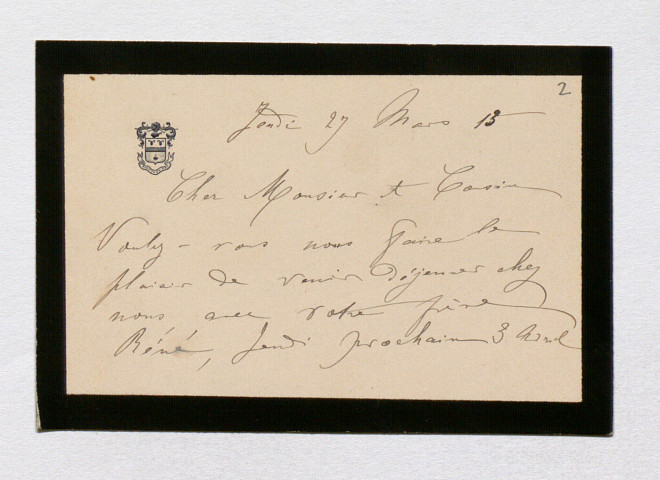 2
Jeudi 27 Mars 13
Cher Monsieur & Cousin
Voulez-vous nous faire le
plaisir de venir déjeuner chez
nous avec votre frère
Réné, Jeudi prochain 3 Avril